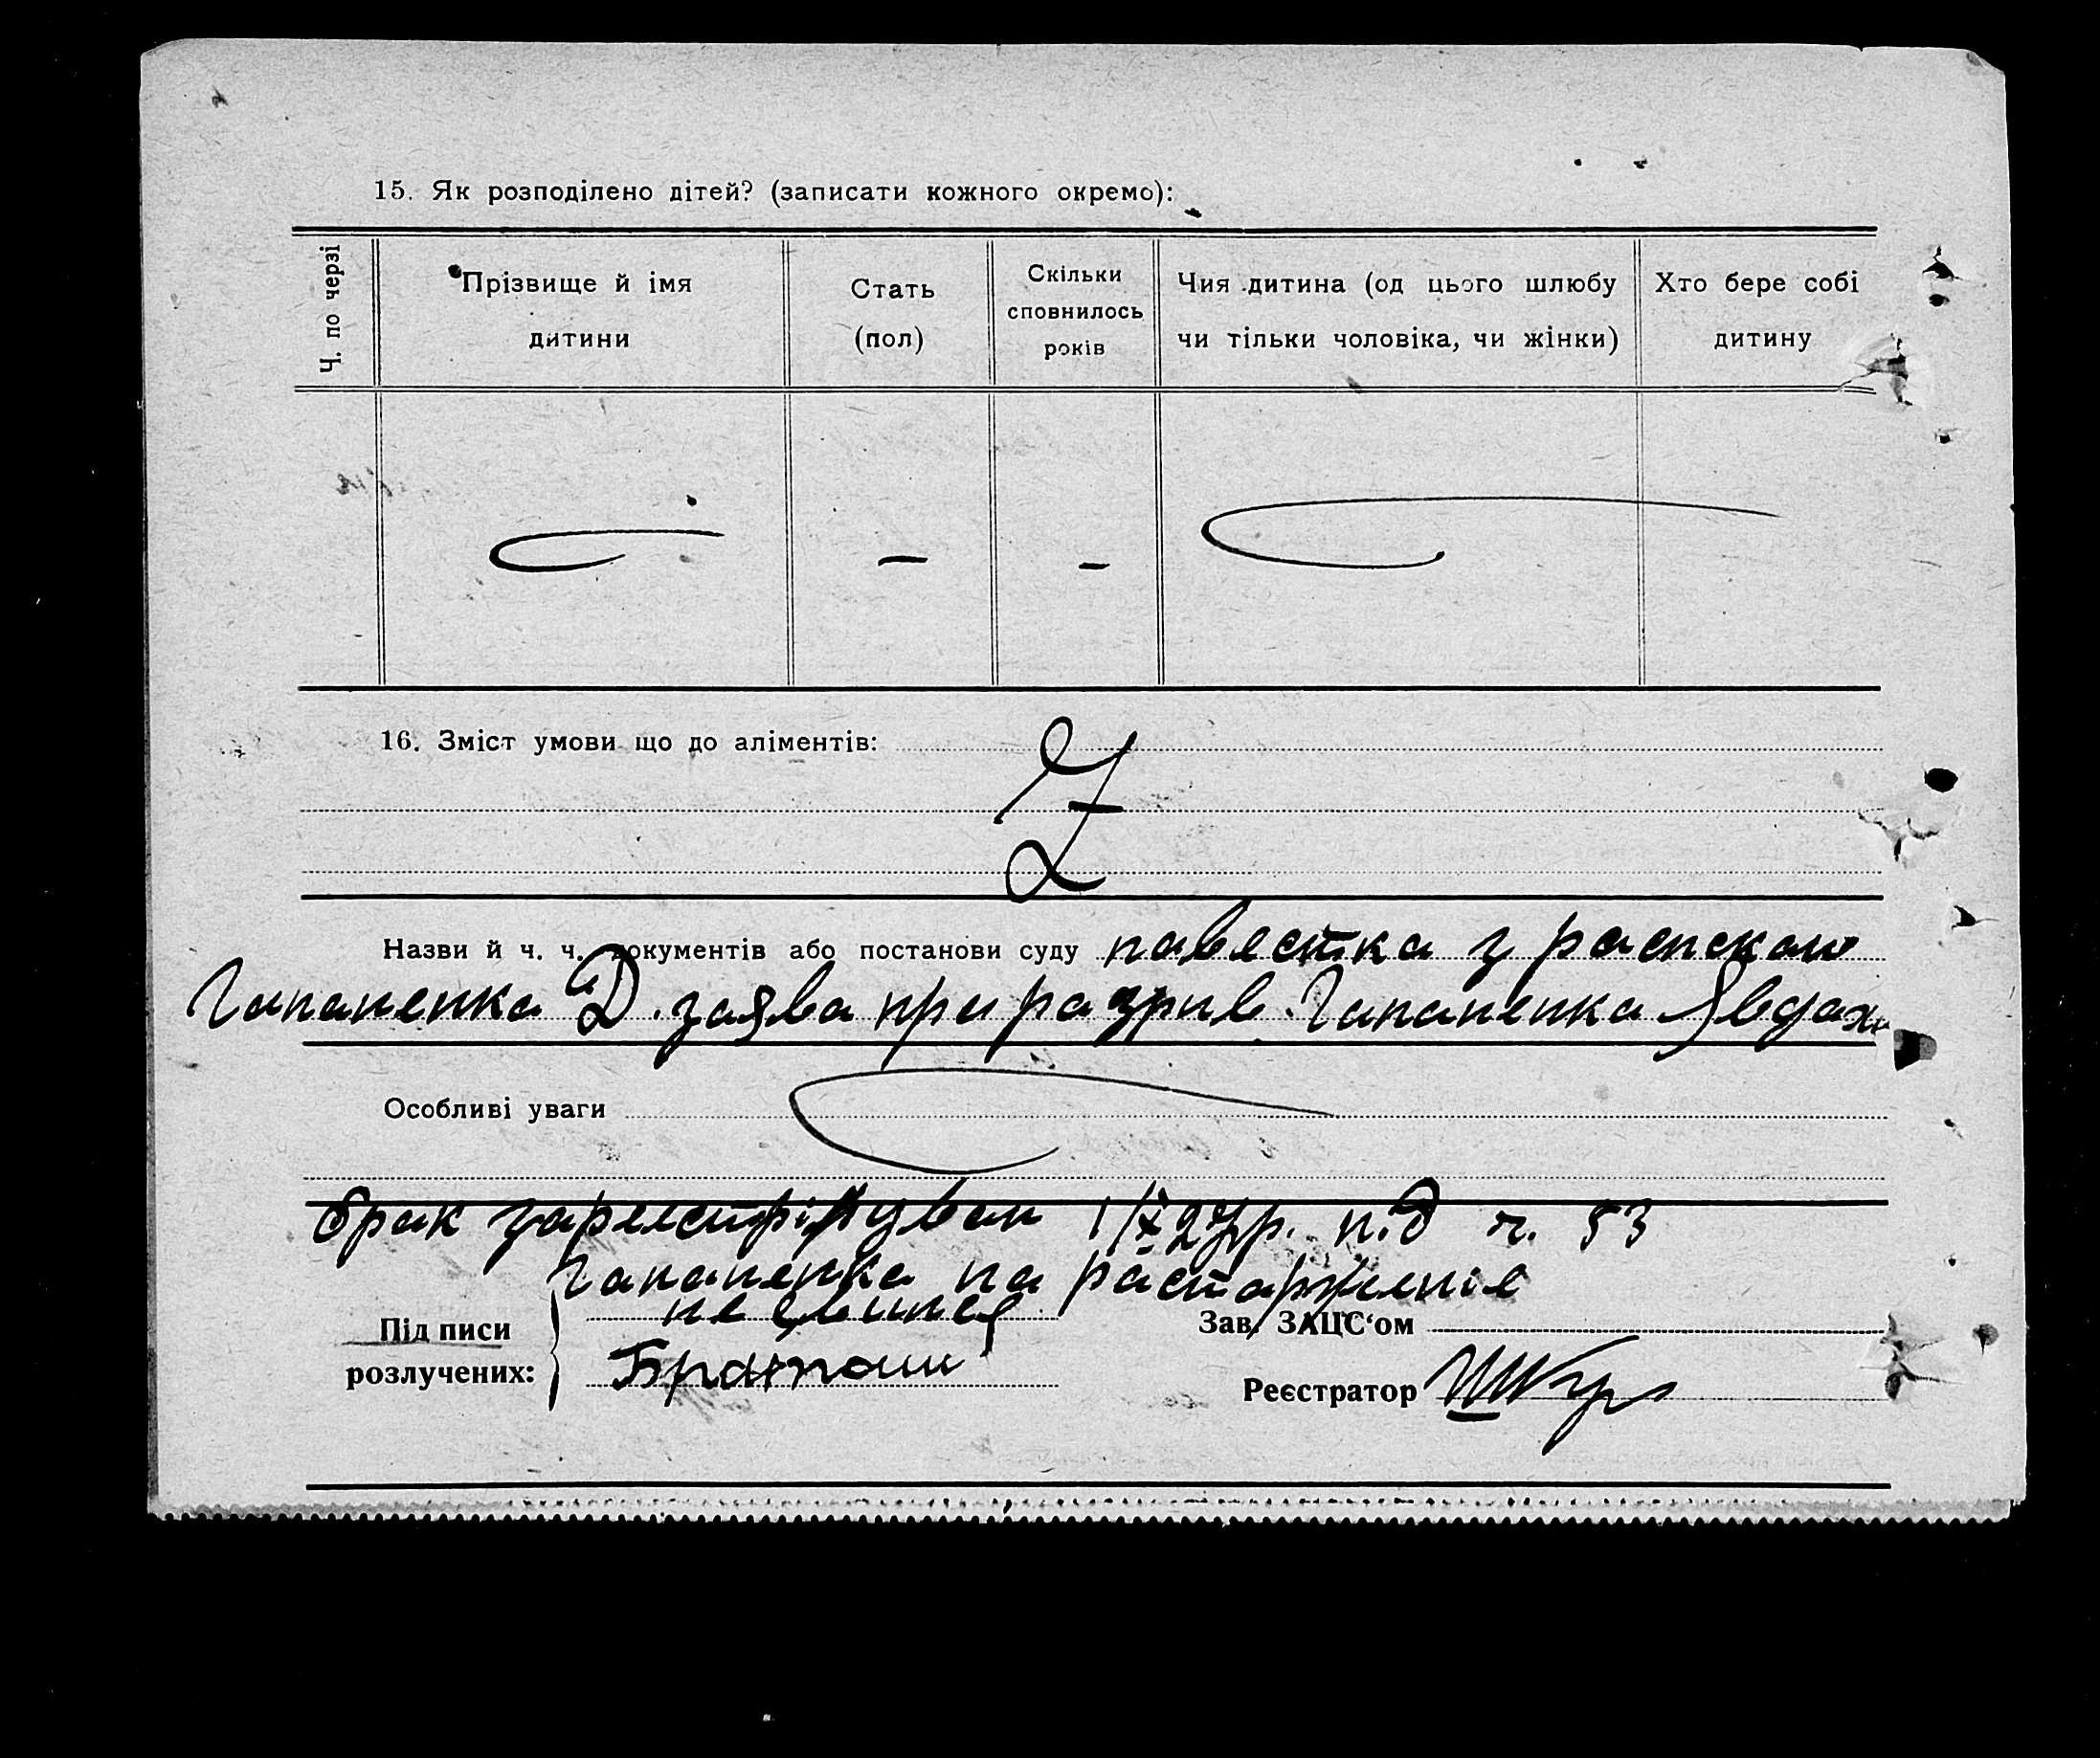 15. Як розподілено дітей? (записати кожного окремо):
Ч. по черзі
Прізвище й імя
дитини
Стать
(пол)
Скільки
сповнилось
років
Чия дитина (од цього шлюбу
чи тільки чоловіка, чи жінки)
Хто бере собі
дитину
— — — —
16. Зміст умови що до аліментів:
Назви й ч. ч. документів або постанови суду павестка з распскою
Гапаненка Д. заява при разрив. Гапаненка Явдох
Особливі уваги
Брак зареєстріруван 1/X 27р. п.д ч. 53
Гапаненка на растарженіе
не явился
Під писи
розлучених:
Зав. ЗАЦС‘ом
Реєстратор